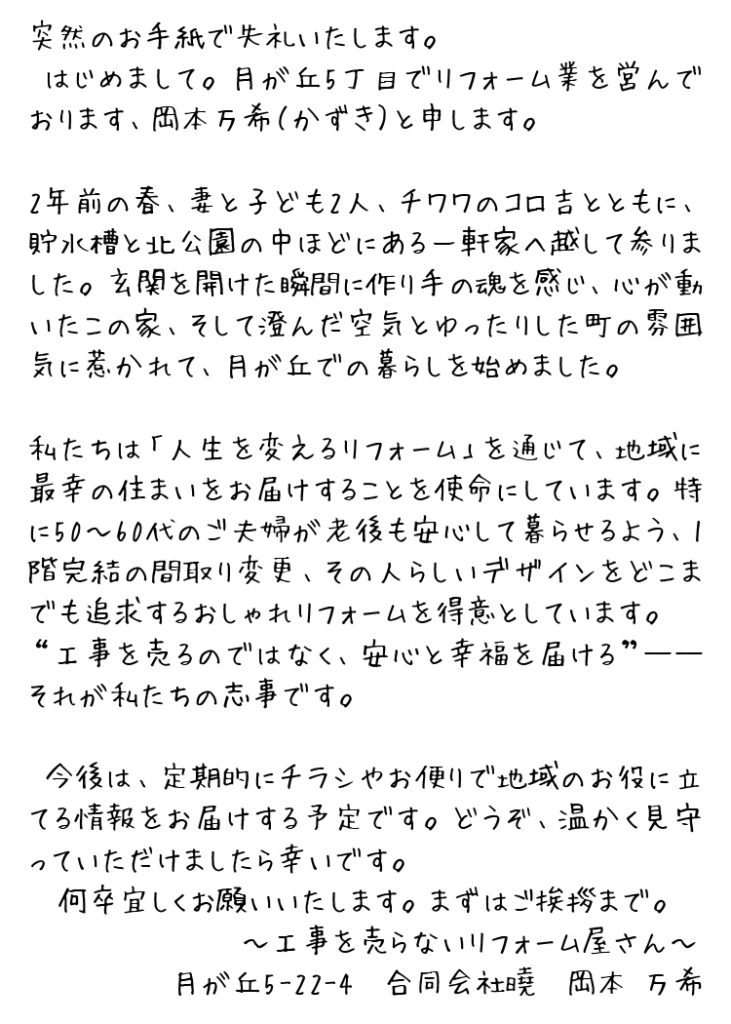 突然のお手紙で失礼いたします。
はじめまして。月が丘5丁目でリフォーム業を営んで
おります、岡本万希(かずき)と申します。
2年前の春、妻と子ども2人、チワワのコロ吉とともに、
貯水槽と北公園の中ほどにある一軒家へ越して参りま
した。玄関を開けた瞬間に作り手の魂を感じ、心が動
いたこの家、そして澄んだ空気とゆったりした町の雰囲
気に惹かれて、月が丘での暮らしを始めました。
私たちは「人生を変えるリフォーム」を通じて、地域に
最幸の住まいをお届けすることを使命にしています。特
に50～60代のご夫婦が老後も安心して暮らせるよう、1
階完結の間取り変更、その人らしいデザインをどこま
でも追求するおしゃれリフォームを得意としています。
“工事を売るのではなく、安心と幸福を届ける”——
それが私たちの志事です。
今後は、定期的にチラシやお便りで地域のお役に立
てる情報をお届けする予定です。どうぞ、温かく見守
っていただけましたら幸いです。
何卒宜しくお願いいたします。まずはご挨拶まで。
～工事を売らないリフォーム屋さん～
月が丘5-22-4　合同会社曉　岡本 万希